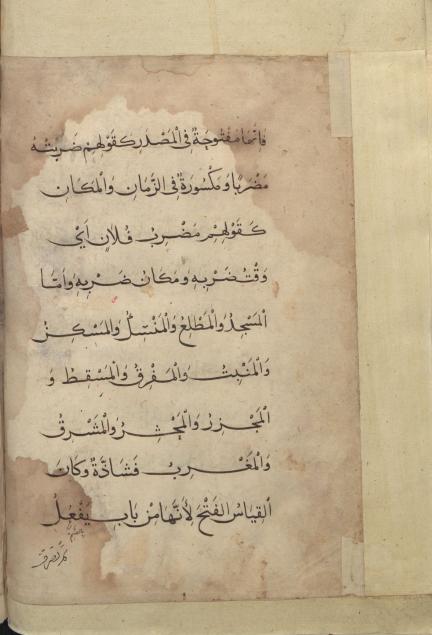 فانها مَفْتُوحَةٌ فِى الْمَصْدَرِ كَقَوْلِهِمْ ضَرَبْتُهُ
مَضْرَبًا وَمَكْسُورَةٌ فِى الزَّمَانِ وَالْمَكَانِ
كَقَوْلِهِمْ مَضْرِبُ فُلَانٍ اَىْ
وَقْتُ ضَرْبِهِ وَمَكَانُ ضَرْبِهِ وَاَمَّا
الْمَسْجِدُ وَالْمَطْلِعُ وَالْمَنْسِكُ وَالْمَسْكِنُ
وَالْمَنْبِتُ وَالْمَفْرِقُ وَالْمَسْقِطُ وَ
الْمَجْزِرُ وَالْمَحْشِرُ وَالْمَشْرِقُ
وَالْمَغْرِبُ فَشَاذَّةٌ وَكَانَ
الْقِيَاسُ الْفَتْحَ لِاَنَّهَا مِنْ بَابِ يَفْعُلُ